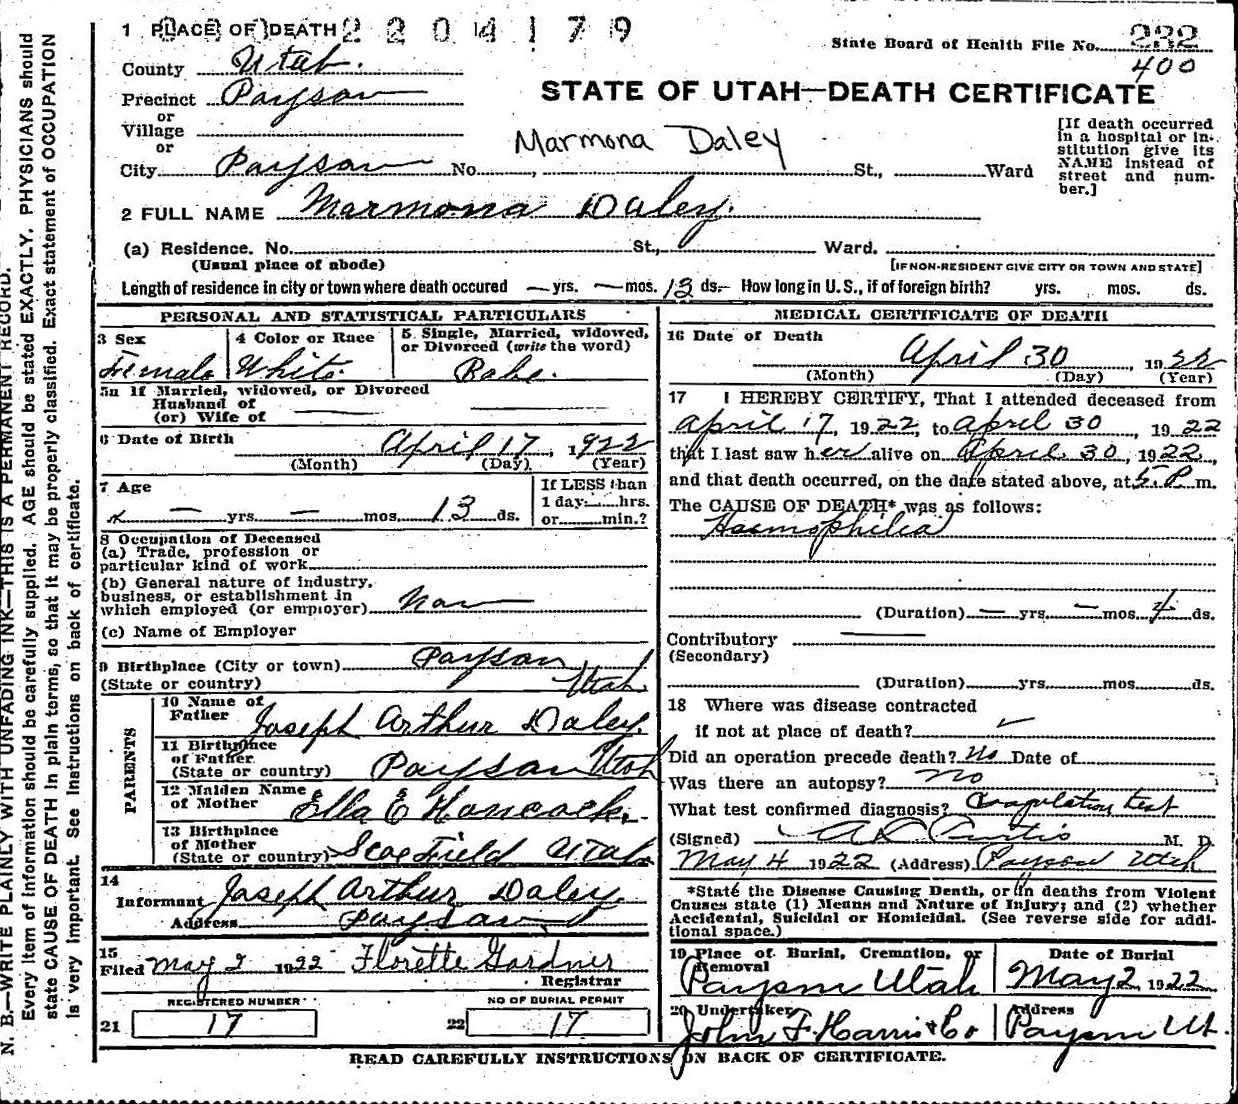 1 PLACE OF DEATH 2204179
State Board of Health File No. 232
400
County Utah.
Precinct Payson
or
Village
or
City Payson No. St., Ward
STATE OF UTAH—DEATH CERTIFICATE
Marmona Daley
[If death occurred
in a hospital or in-
stitution give its
NAME instead of
street and num-
ber.]
2 FULL NAME Marmona Daley.
(a) Residence. No. St., Ward.
(Usual place of abode) [IF NON-RESIDENT GIVE CITY OR TOWN AND STATE]
Length of residence in city or town where death occured — yrs. — mos. 13 ds.— How long in U. S., if of foreign birth? yrs. mos. ds.
PERSONAL AND STATISTICAL PARTICULARS
3 Sex
Female
4 Color or Race
White.
5 Single, Married, widowed,
or Divorced (write the word)
Babe.
5a If Married, widowed, or Divorced
Husband of
(or) Wife of
6 Date of Birth April 17, 1922
(Month) (Day) (Year)
7 Age
— yrs. — mos. 13 ds.
If LESS than
1 day- hrs.
or min.?
8 Occupation of Deceased
(a) Trade, profession or
particular kind of work
(b) General nature of industry,
business, or establishment in
which employed (or employer)
(c) Name of Employer
9 Birthplace (City or town) Payson
(State or country) Utah.
PARENTS
10 Name of
Father Joseph Arthur Daley.
11 Birthplace
of Father
(State or country) Payson Utah
12 Maiden Name
of Mother Ella E Hancock.
13 Birthplace
of Mother
(State or country) Scofield Utah
14
Informant Joseph Arthur Daley
Address Payson
15
Filed May 2 1922 Florette Gardner
Registrar
REGISTERED NUMBER NO OF BURIAL PERMIT
21 17 22 17
MEDICAL CERTIFICATE OF DEATH
16 Date of Death
April 30, 1922
(Month) (Day) (Year)
17 I HEREBY CERTIFY, That I attended deceased from
April 17, 1922, to April 30, 1922
that I last saw her alive on April 30, 1922,
and that death occurred, on the date stated above, at 5. P. m.
The CAUSE OF DEATH* was as follows:
Haemophilia
(Duration) — yrs. — mos. 4 ds.
Contributory
(Secondary)
(Duration) yrs. mos. ds.
18 Where was disease contracted
if not at place of death?
Did an operation precede death? No Date of
Was there an autopsy? no
What test confirmed diagnosis? Coagulation test
(Signed) A L Curtis M. D.
May 4 1922 (Address) Payson Utah
*State the Disease Causing Death, or in deaths from Violent
Causes state (1) Means and Nature of Injury; and (2) whether
Accidental, Suicidal or Homicidal. (See reverse side for addi-
tional space.)
19 Place of Burial, Cremation, or
Removal
Payson Utah
Date of Burial
May 2, 1922
20 Undertaker
John F. Harris & Co
Address
Payson Ut.
READ CAREFULLY INSTRUCTIONS ON BACK OF CERTIFICATE.
N. B.—WRITE PLAINLY WITH UNFADING INK—THIS IS A PERMANENT RECORD.
Every item of information should be carefully supplied. AGE should be stated EXACTLY. PHYSICIANS should
state CAUSE OF DEATH in plain terms, so that it may be properly classified. Exact statement of OCCUPATION
is very important. See instructions on back of certificate.